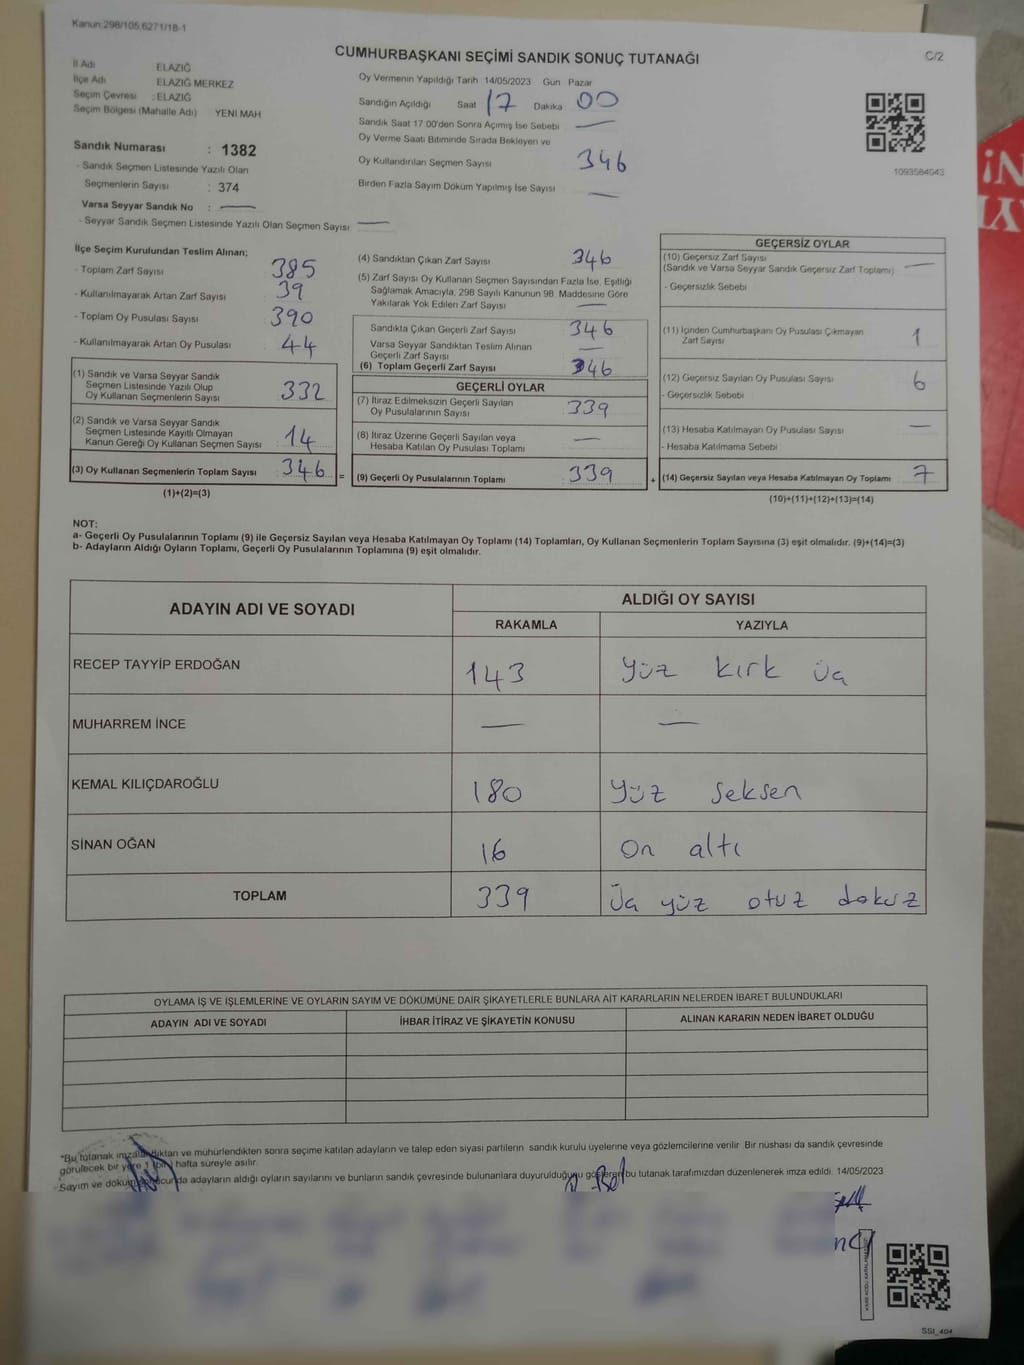 Kanun:298/105,6271/18-1
CUMHURBAŞKANI SEÇİMİ SANDIK SONUÇ TUTANAĞI
C/2
İl Adı ELAZIĞ
İlçe Adı ELAZIĞ MERKEZ
Seçim Çevresi : ELAZIĞ
Seçim Bölgesi (Mahalle Adı) YENİ MAH
Sandık Numarası : 1382
- Sandık Seçmen Listesinde Yazılı Olan
Seçmenlerin Sayısı : 374
Varsa Seyyar Sandık No : —
- Seyyar Sandık Seçmen Listesinde Yazılı Olan Seçmen Sayısı: —
Oy Vermenin Yapıldığı Tarih 14/05/2023 Gün Pazar
Sandığın Açıldığı Saat 17 Dakika 00
Sandık Saat 17:00'den Sonra Açımış İse Sebebi —
Oy Verme Saati Bitiminde Sırada Bekleyen ve
Oy Kullandırılan Seçmen Sayısı 346
Birden Fazla Sayım Döküm Yapılmış İse Sayısı —
1093584043
İlçe Seçim Kurulundan Teslim Alınan;
- Toplam Zarf Sayısı 385
- Kullanılmayarak Artan Zarf Sayısı 39
- Toplam Oy Pusulası Sayısı 390
- Kullanılmayarak Artan Oy Pusulası 44
(1) Sandık ve Varsa Seyyar Sandık
Seçmen Listesinde Yazılı Olup
Oy Kullanan Seçmenlerin Sayısı 332
(2) Sandık ve Varsa Seyyar Sandık
Seçmen Listesinde Kayıtlı Olmayan
Kanun Gereği Oy Kullanan Seçmen Sayısı 14
(3) Oy Kullanan Seçmenlerin Toplam Sayısı 346 =
(1)+(2)=(3)
(4) Sandıktan Çıkan Zarf Sayısı 346
(5) Zarf Sayısı Oy Kullanan Seçmen Sayısından Fazla İse, Eşitliği
Sağlamak Amacıyla, 298 Sayılı Kanunun 98. Maddesine Göre
Yakılarak Yok Edilen Zarf Sayısı —
Sandıkta Çıkan Geçerli Zarf Sayısı 346
Varsa Seyyar Sandıktan Teslim Alınan
Geçerli Zarf Sayısı —
(6) Toplam Geçerli Zarf Sayısı 346
GEÇERLİ OYLAR
(7) İtiraz Edilmeksizin Geçerli Sayılan
Oy Pusulalarının Sayısı 339
(8) İtiraz Üzerine Geçerli Sayılan veya
Hesaba Katılan Oy Pusulası Toplamı —
(9) Geçerli Oy Pusulalarının Toplamı 339 +
GEÇERSİZ OYLAR
(10) Geçersiz Zarf Sayısı
(Sandık ve Varsa Seyyar Sandık Geçersiz Zarf Toplamı) —
- Geçersizlik Sebebi
(11) İçinden Cumhurbaşkanı Oy Pusulası Çıkmayan
Zarf Sayısı 1
(12) Geçersiz Sayılan Oy Pusulası Sayısı 6
- Geçersizlik Sebebi
(13) Hesaba Katılmayan Oy Pusulası Sayısı —
- Hesaba Katılmama Sebebi
(14) Geçersiz Sayılan veya Hesaba Katılmayan Oy Toplamı 7
(10)+(11)+(12)+(13)=(14)
NOT:
a- Geçerli Oy Pusulalarının Toplamı (9) ile Geçersiz Sayılan veya Hesaba Katılmayan Oy Toplamı (14) Toplamları, Oy Kullanan Seçmenlerin Toplam Sayısına (3) eşit olmalıdır. (9)+(14)=(3)
b- Adayların Aldığı Oyların Toplamı, Geçerli Oy Pusulalarının Toplamına (9) eşit olmalıdır.
ADAYIN ADI VE SOYADI ALDIĞI OY SAYISI
RAKAMLA YAZIYLA
RECEP TAYYİP ERDOĞAN 143 Yüz kırk üç
MUHARREM İNCE — —
KEMAL KILIÇDAROĞLU 180 Yüz Seksen
SİNAN OĞAN 16 On altı
TOPLAM 339 Üç yüz otuz dokuz
OYLAMA İŞ VE İŞLEMLERİNE VE OYLARIN SAYIM VE DÖKÜMÜNE DAİR ŞİKAYETLERLE BUNLARA AİT KARARLARIN NELERDEN İBARET BULUNDUKLARI
ADAYIN ADI VE SOYADI İHBAR İTİRAZ VE ŞİKAYETİN KONUSU ALINAN KARARIN NEDEN İBARET OLDUĞU
*Bu tutanak imzalandıktan ve mühürlendikten sonra seçime katılan adayların ve talep eden siyasi partilerin sandık kurulu üyelerine veya gözlemcilerine verilir. Bir nüshası da sandık çevresinde
görülecek bir yere 1 (bir) hafta süreyle asılır.
Sayım ve döküm sonucunda adayların aldığı oyların sayılarını ve bunların sandık çevresinde bulunanlara duyurulduğunu gösteren bu tutanak tarafımızdan düzenlenerek imza edildi. 14/05/2023
SSI_404